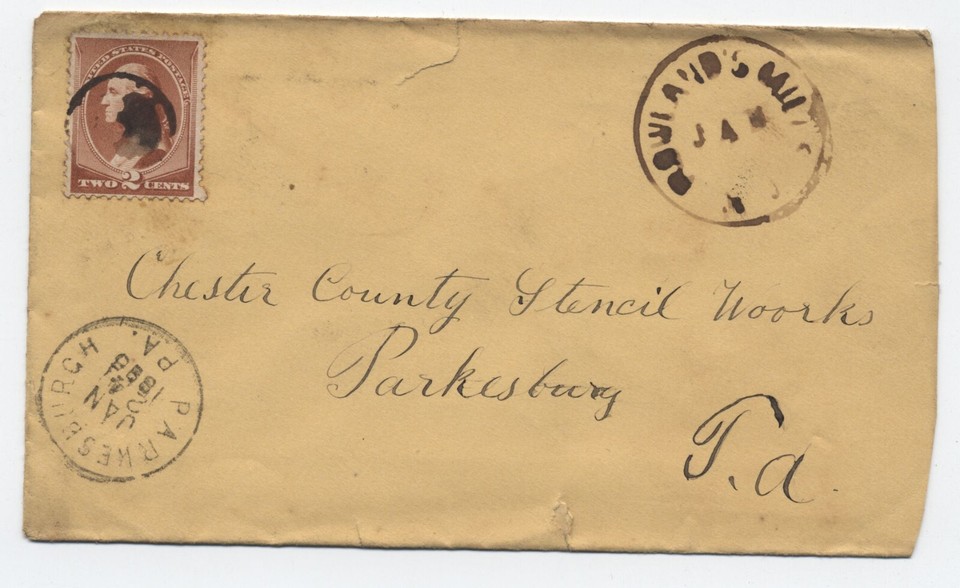 UNITED STATES POSTAGE
TWO 2 CENTS
ROWLAND'S
JAN
Chester County Stencil Woorks
Parkesburg
P.a.
PARKESBURGH PA.
JAN